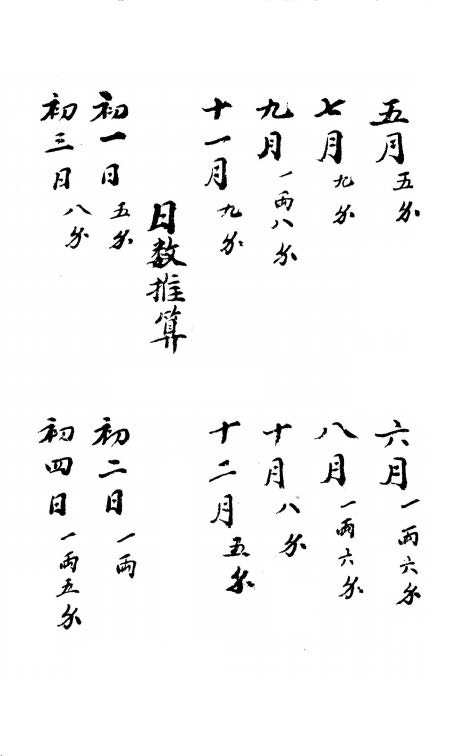 五月五分
六月一两六分
七月九分
八月一两六分
九月一两八分
十月八分
十一月九分
十二月五分
日数推算
初一日五分
初二日一两
初三日八分
初四日一两五分